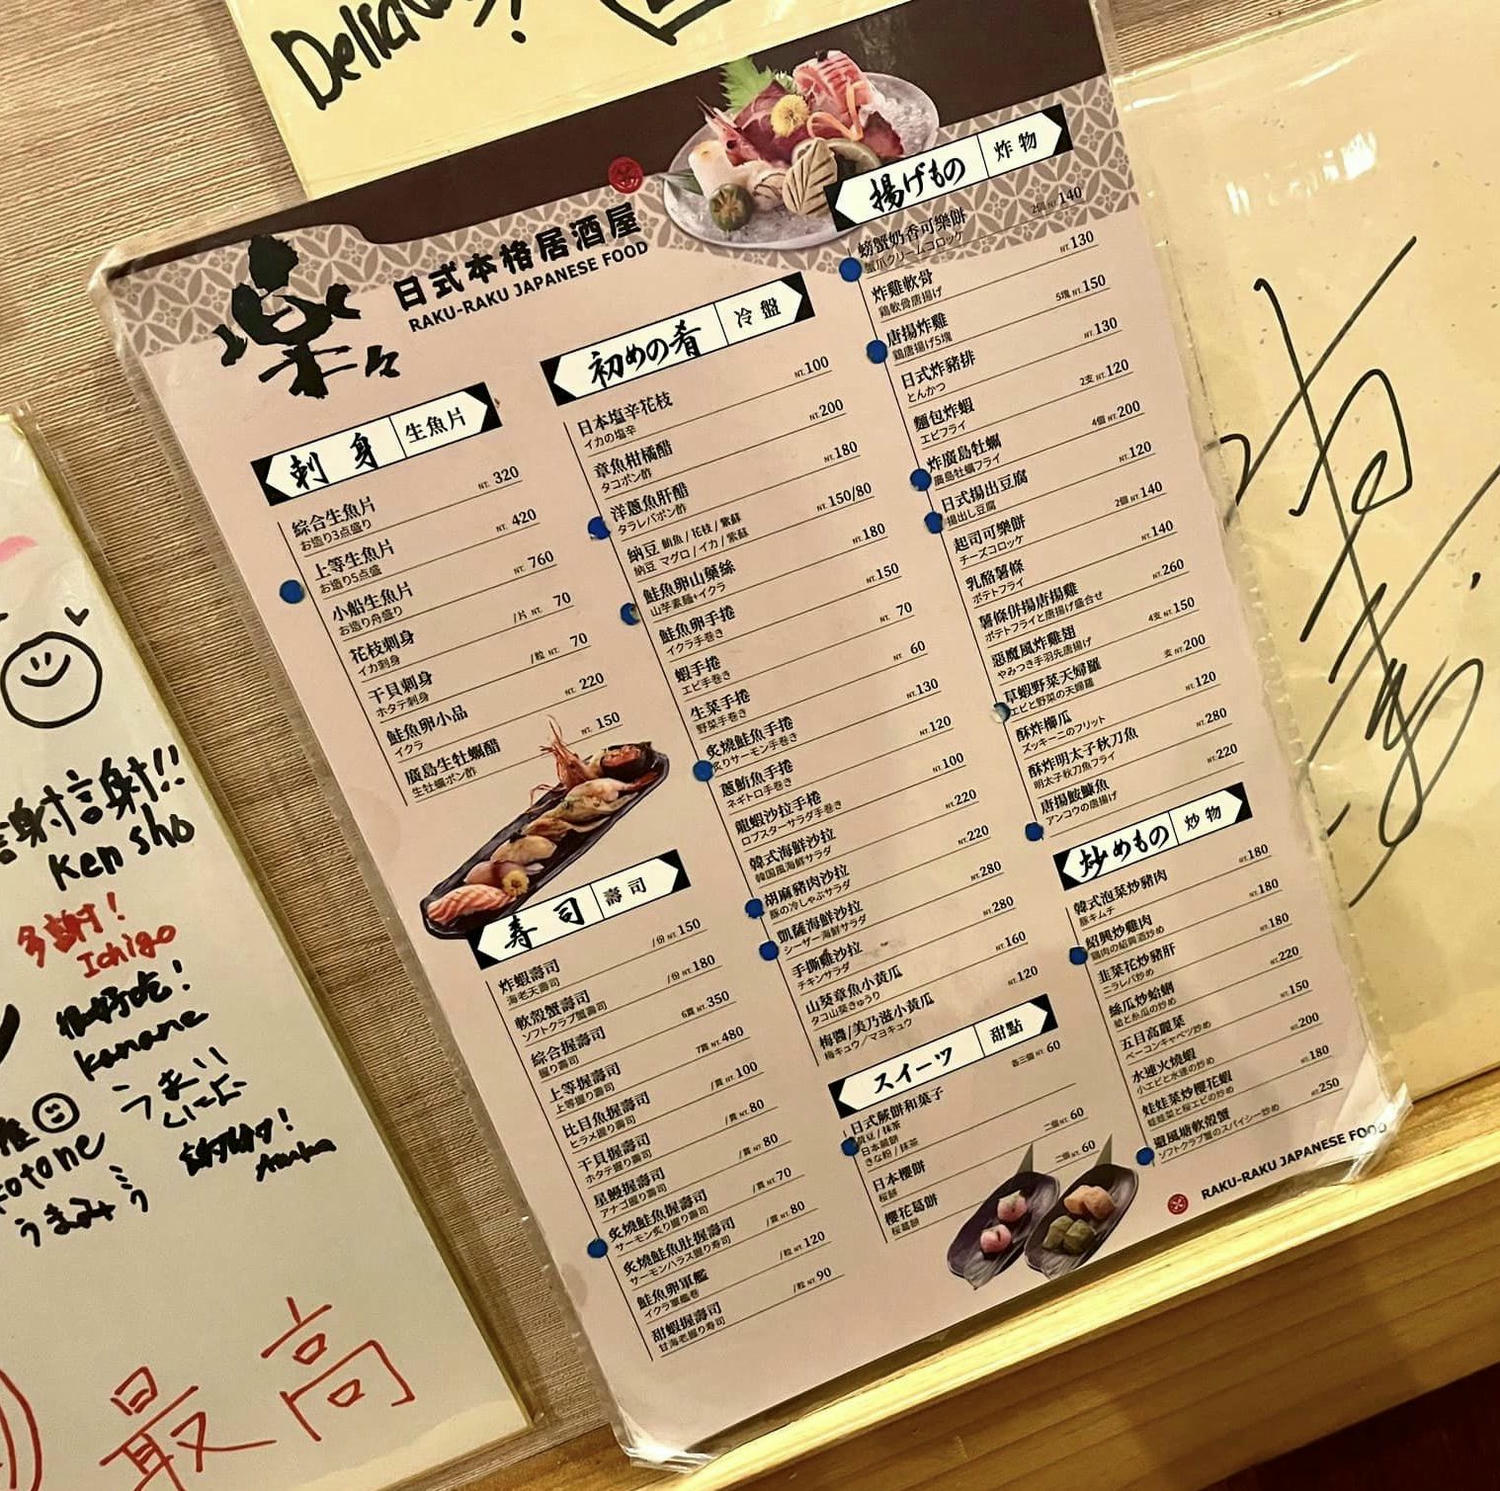 楽々
日式本格居酒屋
RAKU-RAKU JAPANESE FOOD
刺身 生魚片
綜合生魚片 NT. 320
お造り3点盛り
上等生魚片 NT. 420
お造り5点盛
小船生魚片 NT. 760
お造り舟盛り
花枝刺身 /片 NT. 70
イカ刺身
干貝刺身 /粒 NT. 70
ホタテ刺身
鮭魚卵小品 NT. 220
イクラ
廣島生牡蠣醋 NT. 150
生牡蠣ポン酢
寿司 壽司
炸蝦壽司 /份 NT. 150
海老天壽司
軟殼蟹壽司 /份 NT. 180
ソフトクラブ蟹壽司
綜合握壽司 6貫 NT. 350
握り壽司
上等握壽司 7貫 NT. 480
上等握り壽司
比目魚握壽司 /貫 NT. 100
ヒラメ握り壽司
干貝握壽司 /貫 NT. 80
ホタテ握り壽司
星鰻握壽司 /貫 NT. 80
アナゴ握り壽司
炙燒鮭魚握壽司 /貫 NT. 70
サーモン炙り握り壽司
炙燒鮭魚肚握壽司 /貫 NT. 80
サーモンハラス握り寿司
鮭魚卵軍艦 /粒 NT. 120
イクラ軍艦巻
甜蝦握壽司 /粒 NT. 90
甘海老握り寿司
初めの肴 冷盤
日本塩辛花枝 NT. 100
イカの塩辛
章魚柑橘醋 NT. 200
タコポン酢
洋蔥魚肝醋 NT. 180
タラレバポン酢
納豆 鮪魚 / 花枝 / 紫蘇 NT. 150/80
納豆 マグロ / イカ / 紫蘇
鮭魚卵山藥絲 NT. 180
山芋素麺+イクラ
鮭魚卵手捲 NT. 150
イクラ手巻き
蝦手捲 NT. 70
エビ手巻き
生菜手捲 NT. 60
野菜手巻き
炙燒鮭魚手捲 NT. 130
炙りサーモン手巻き
蔥鮪魚手捲 NT. 120
ネギトロ手巻き
龍蝦沙拉手捲 NT. 100
ロブスターサラダ手巻き
韓式海鮮沙拉 NT. 220
韓国風海鮮サラダ
胡麻豬肉沙拉 NT. 220
豚の冷しゃぶサラダ
凱薩海鮮沙拉 NT. 280
シーザー海鮮サラダ
手撕雞沙拉 NT. 280
チキンサラダ
山葵章魚小黃瓜 NT. 160
タコ山葵きゅうり
梅醬/美乃滋小黃瓜 NT. 120
梅キュウ/マヨキュウ
スイーツ 甜點
日式蕨餅和菓子 各三個 NT. 60
黃豆 / 抹茶
日本蕨餅
きな粉 / 抹茶
日本櫻餅 二個 NT. 60
桜餅
櫻花葛餅 二個 NT. 60
桜葛餅
揚げもの 炸物
螃蟹奶香可樂餅 2個 NT. 140
蟹爪クリームコロッケ
炸雞軟骨 NT. 130
鶏軟骨唐揚げ
唐揚炸雞 5塊 NT. 150
鶏唐揚げ5塊
日式炸豬排 NT. 130
とんかつ
麵包炸蝦 2支 NT. 120
エビフライ
炸廣島牡蠣 4個 NT. 200
廣島牡蠣フライ
日式揚出豆腐 NT. 120
揚出し豆腐
起司可樂餅 2個 NT. 140
チーズコロッケ
乳酪薯條 NT. 140
ポテトフライ
薯條併揚唐揚雞 NT. 260
ポテトフライと唐揚げ盛合せ
惡魔風炸雞翅 4支 NT. 150
やみつき手羽先唐揚げ
草蝦野菜天婦羅 支 NT. 200
エビと野菜の天婦羅
酥炸櫛瓜 NT. 120
ズッキーニのフリット
酥炸明太子秋刀魚 NT. 280
明太子秋刀魚フライ
唐揚鮟鱇魚 NT. 220
アンコウの唐揚げ
炒めもの 炒物
韓式泡菜炒豬肉 NT. 180
豚キムチ
紹興炒雞肉 NT. 180
鶏肉の紹興酒炒め
韭菜花炒豬肝 NT. 180
ニラレバ炒め
絲瓜炒蛤蜊 NT. 220
蛤と糸瓜の炒め
五目高麗菜 NT. 150
ベーコンキャベツ炒め
水連火燒蝦 NT. 200
小エビと水連の炒め
娃娃菜炒櫻花蝦 NT. 180
娃娃菜と桜エビの炒め
避風塘軟殼蟹 NT. 250
ソフトクラブ蟹のスパイシー炒め
RAKU-RAKU JAPANESE FOOD
謝謝!!
Ken sho
多謝!
Ichigo
很好吃!
kanane
うまい
最高